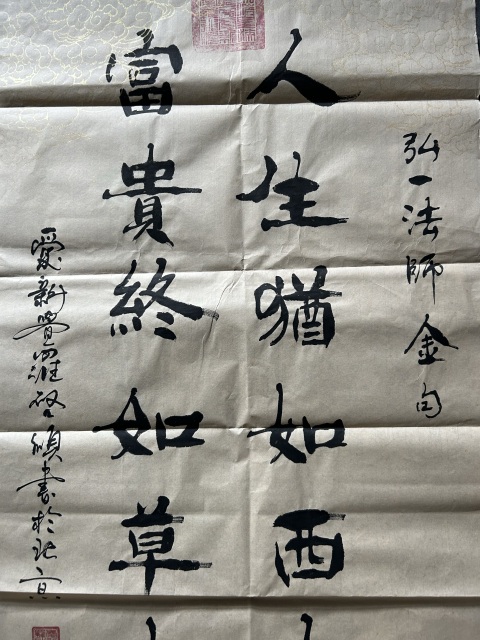 弘一法師金句
人生猶如西
富貴終如草
愛新覺羅書於北京